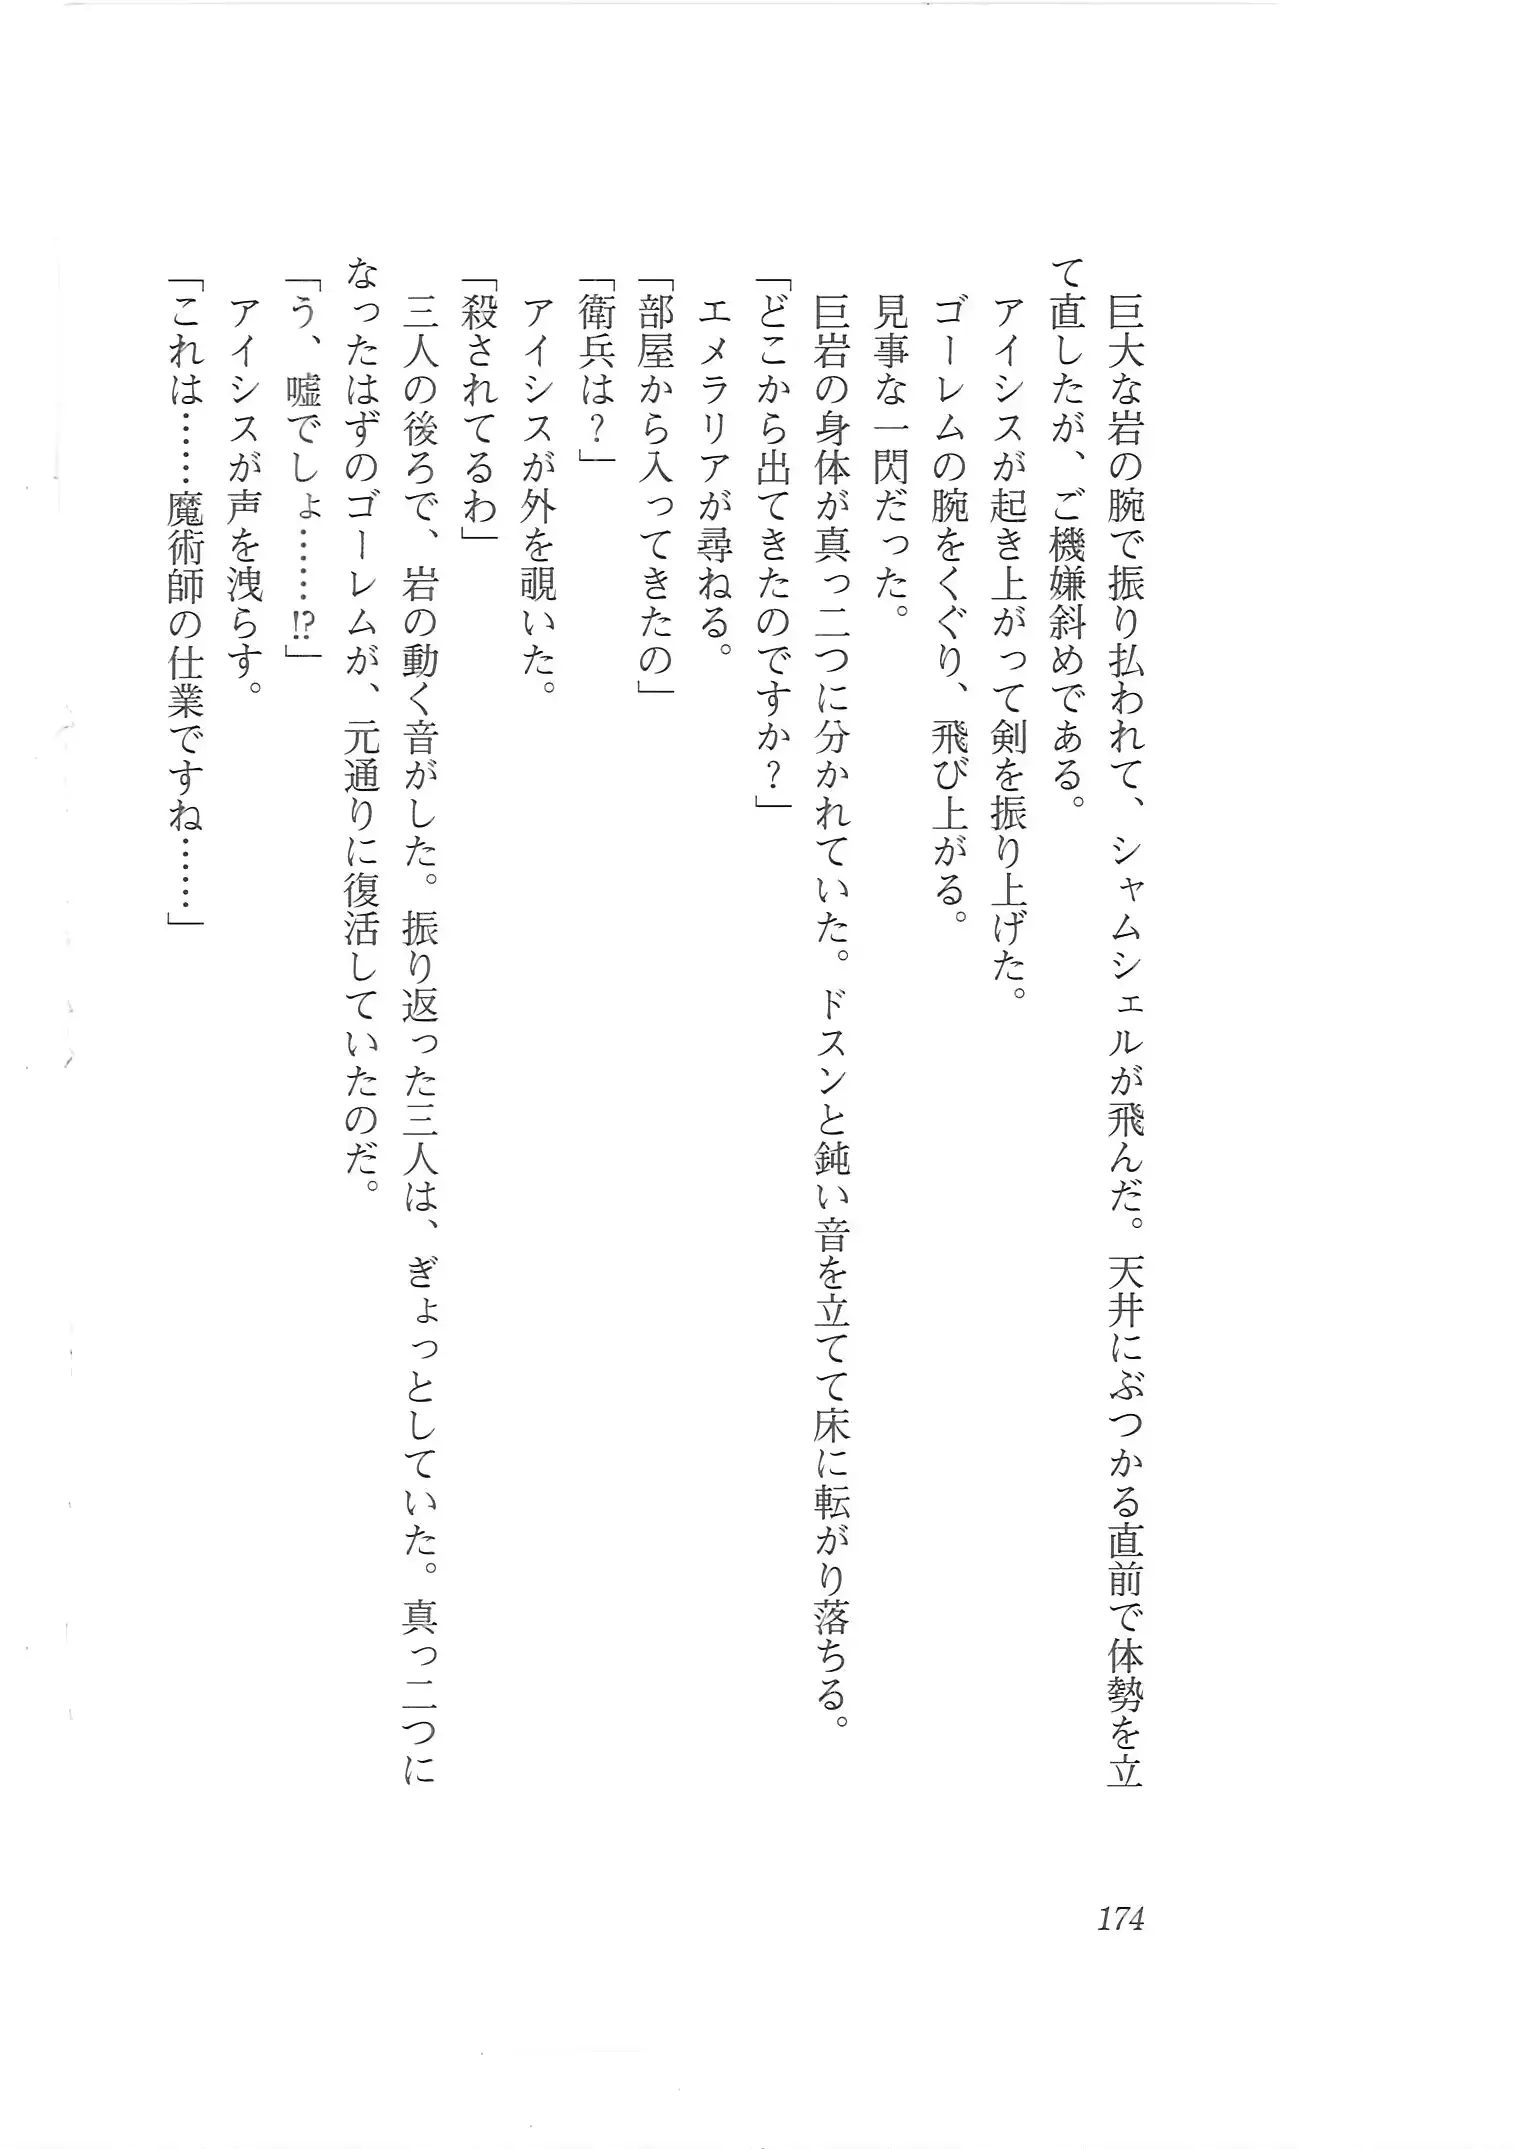 巨大な岩の腕で振り払われて、シャムシェルが飛んだ。天井にぶつかる直前で体勢を立
て直したが、ご機嫌斜めである。
　アイシスが起き上がって剣を振り上げた。
　ゴーレムの腕をくぐり、飛び上がる。
　見事な一閃だった。
　巨岩の身体が真っ二つに分かれていた。ドスンと鈍い音を立てて床に転がり落ちる。
「どこから出てきたのですか？」
　エメラリアが尋ねる。
「部屋から入ってきたの」
「衛兵は？」
　アイシスが外を覗いた。
「殺されてるわ」
　三人の後ろで、岩の動く音がした。振り返った三人は、ぎょっとしていた。真っ二つに
なったはずのゴーレムが、元通りに復活していたのだ。
「う、嘘でしょ……⁉」
　アイシスが声を洩らす。
「これは……魔術師の仕業ですね……」
174